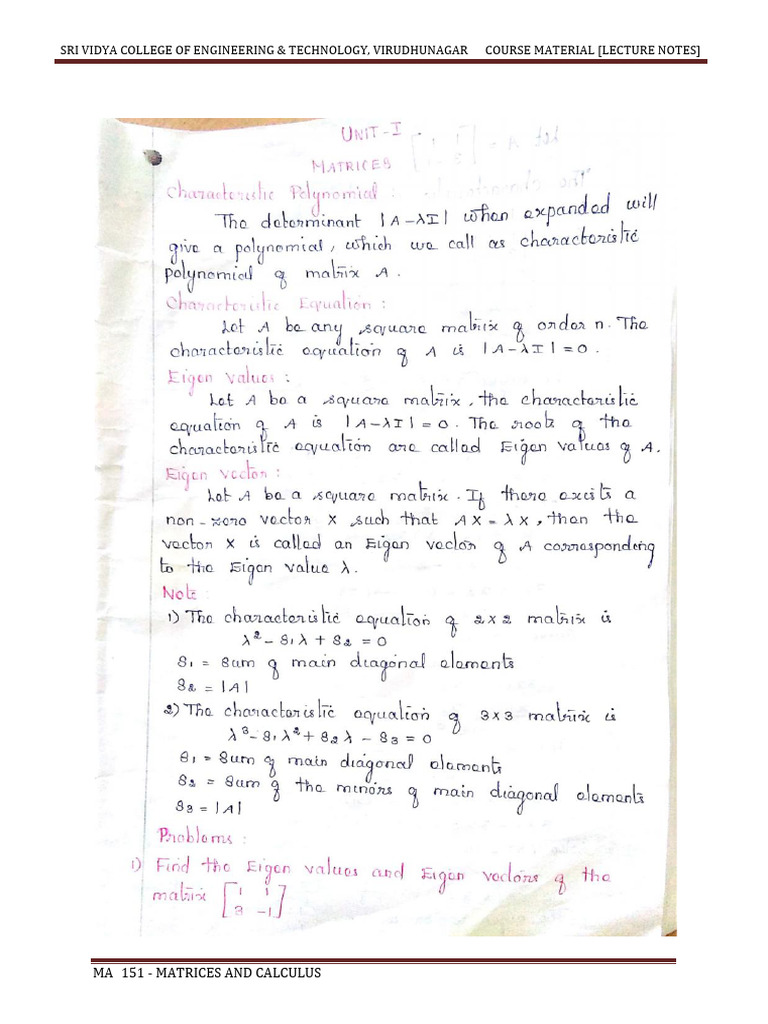 SRI VIDYA COLLEGE OF ENGINEERING & TECHNOLOGY, VIRUDHUNAGAR COURSE MATERIAL [LECTURE NOTES]
UNIT-I
MATRICES
Characteristic Polynomial :
The determinant |A-λI| when expanded will
give a polynomial, which we call as characteristic
polynomial of matrix A.
Characteristic Equation :
Let A be any square matrix of order n. The
characteristic equation of A is |A-λI|=0.
Eigen Values :
Let A be a square matrix, the characteristic
equation of A is |A-λI|=0. The roots of the
characteristic equation are called Eigen values of A.
Eigen vector :
Let A be a square matrix. If there exists a
non-zero vector X such that AX=λX, then the
vector X is called an Eigen vector of A corresponding
to the Eigen value λ.
Note :
1) The characteristic equation of 2x2 matrix is
λ²-S₁λ+S₂=0
S₁ = Sum of main diagonal elements
S₂ = |A|
2) The characteristic equation of 3x3 matrix is
λ³-S₁λ²+S₂λ-S₃=0
S₁ = Sum of main diagonal elements
S₂ = Sum of the minors of main diagonal elements
S₃ = |A|
Problems :
1) Find the Eigen values and Eigen vectors of the
matrix [1 1
3 -1]
MA 151 - MATRICES AND CALCULUS